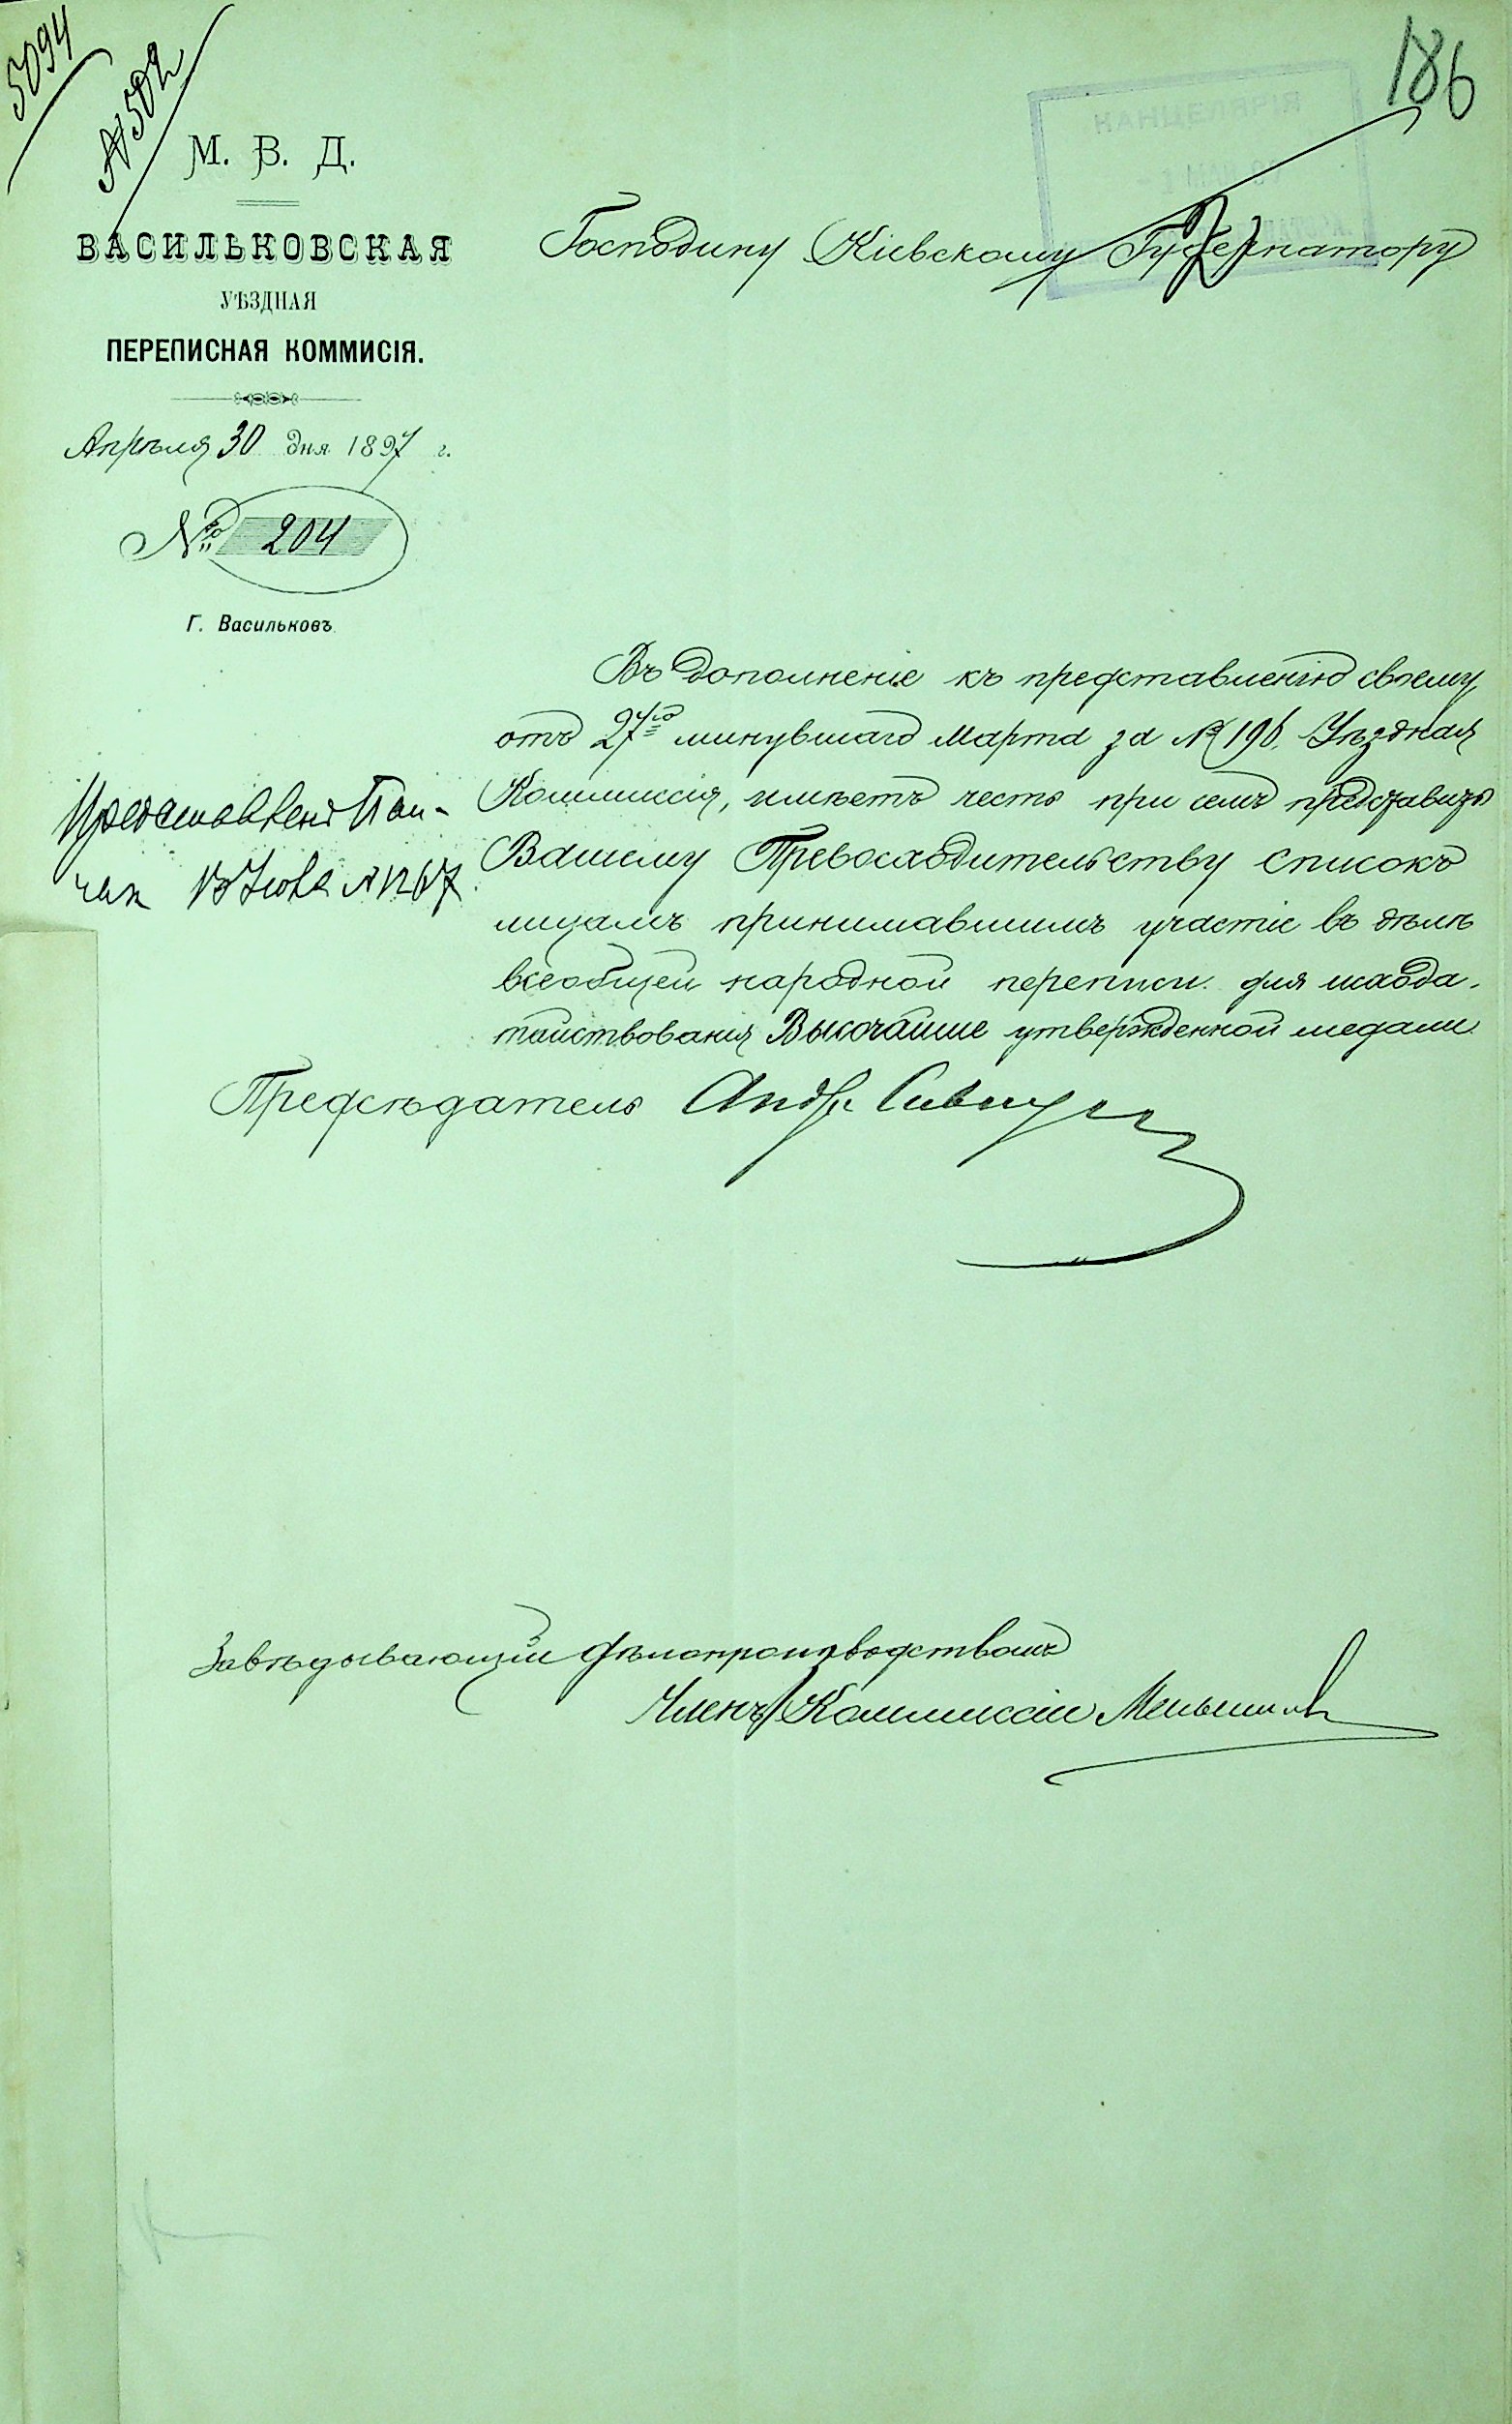 5094
№ 502
186
М. В. Д.
ВАСИЛЬКОВСКАЯ
УѢЗДНАЯ
ПЕРЕПИСНАЯ КОММИСІЯ.
Апрѣля 30 дня 1897 г.
№ 204
Г. Васильковъ
КАНЦЕЛЯРІЯ
Господину Кіевскому Губернатору
Въ дополненіе къ представленію своему
отъ 27го минувшаго Марта за № 196, Уѣздная
Коммиссія, имѣетъ честь при семъ представить
Вашему Превосходительству списокъ
лицамъ принимавшимъ участіе въ дѣлѣ
всеобщей народной переписи для исхода-
тайствованія Высочайше утвержденной медали.
Предсѣдатель Андр.
13 Іюня № 1267
Завѣдывающій дѣлопроизводствомъ
Членъ Коммиссіи Меньшиковъ